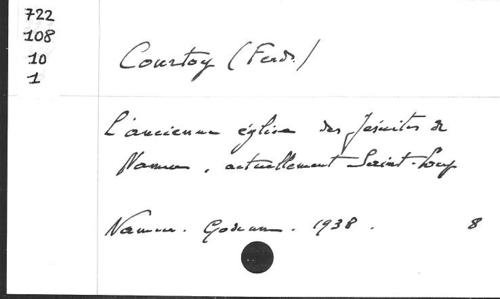 722
108
10
1
Courtoy (Ferd.)
L'ancienne église des Jésuites de
Namur, actuellement Saint-Loup
Namur. Godenne. 1938. 8